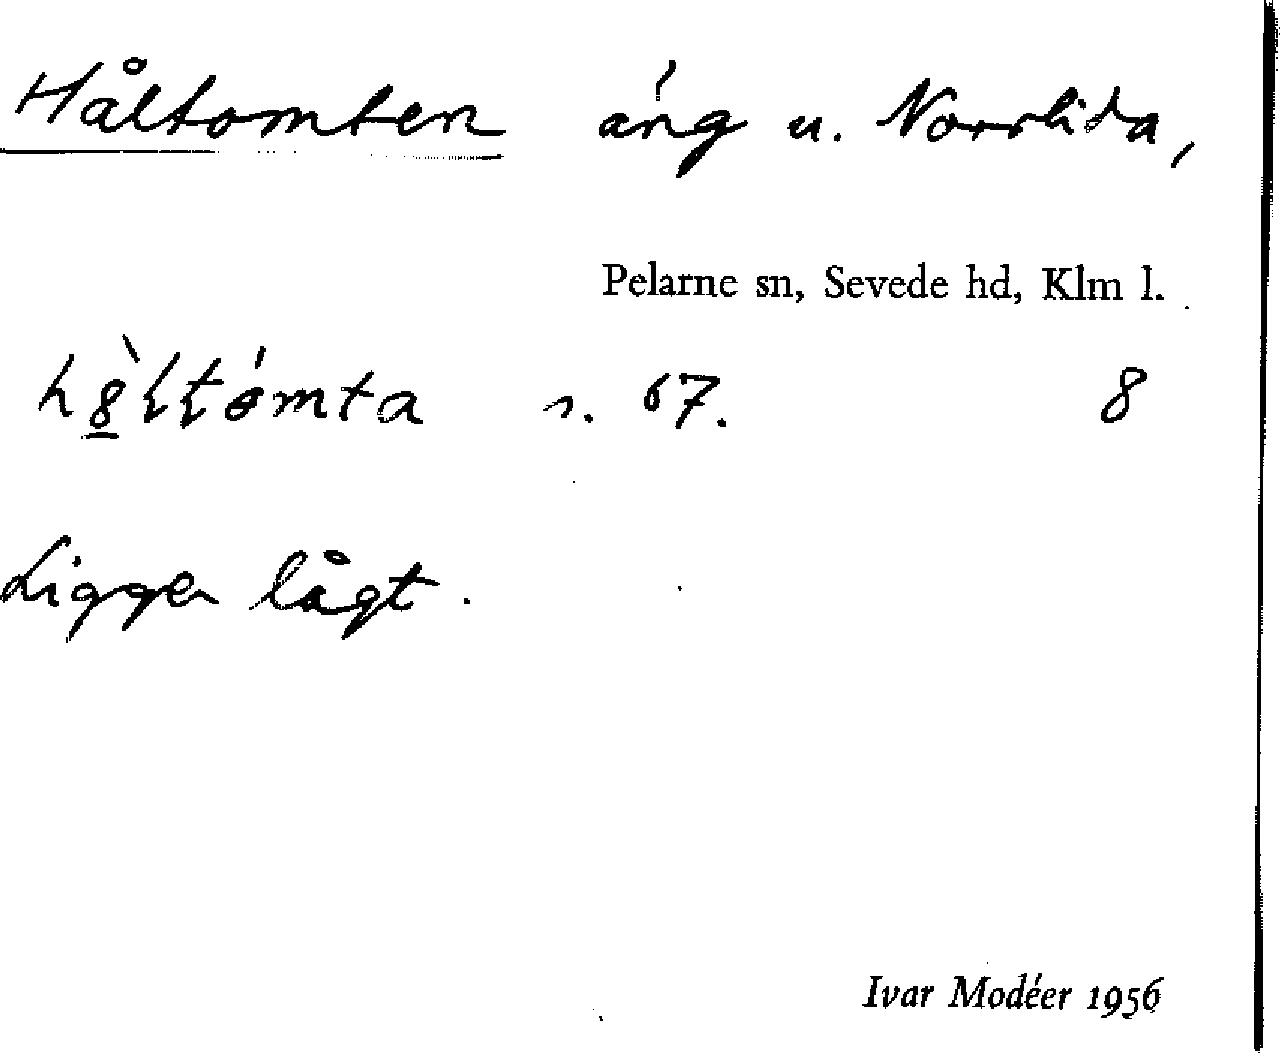 Håltomten äng u. Norrlida,
Pelarne sn, Sevede hd, Klm l.
n. 67. 8
Ligger lågt.
Ivar Modéer 1956